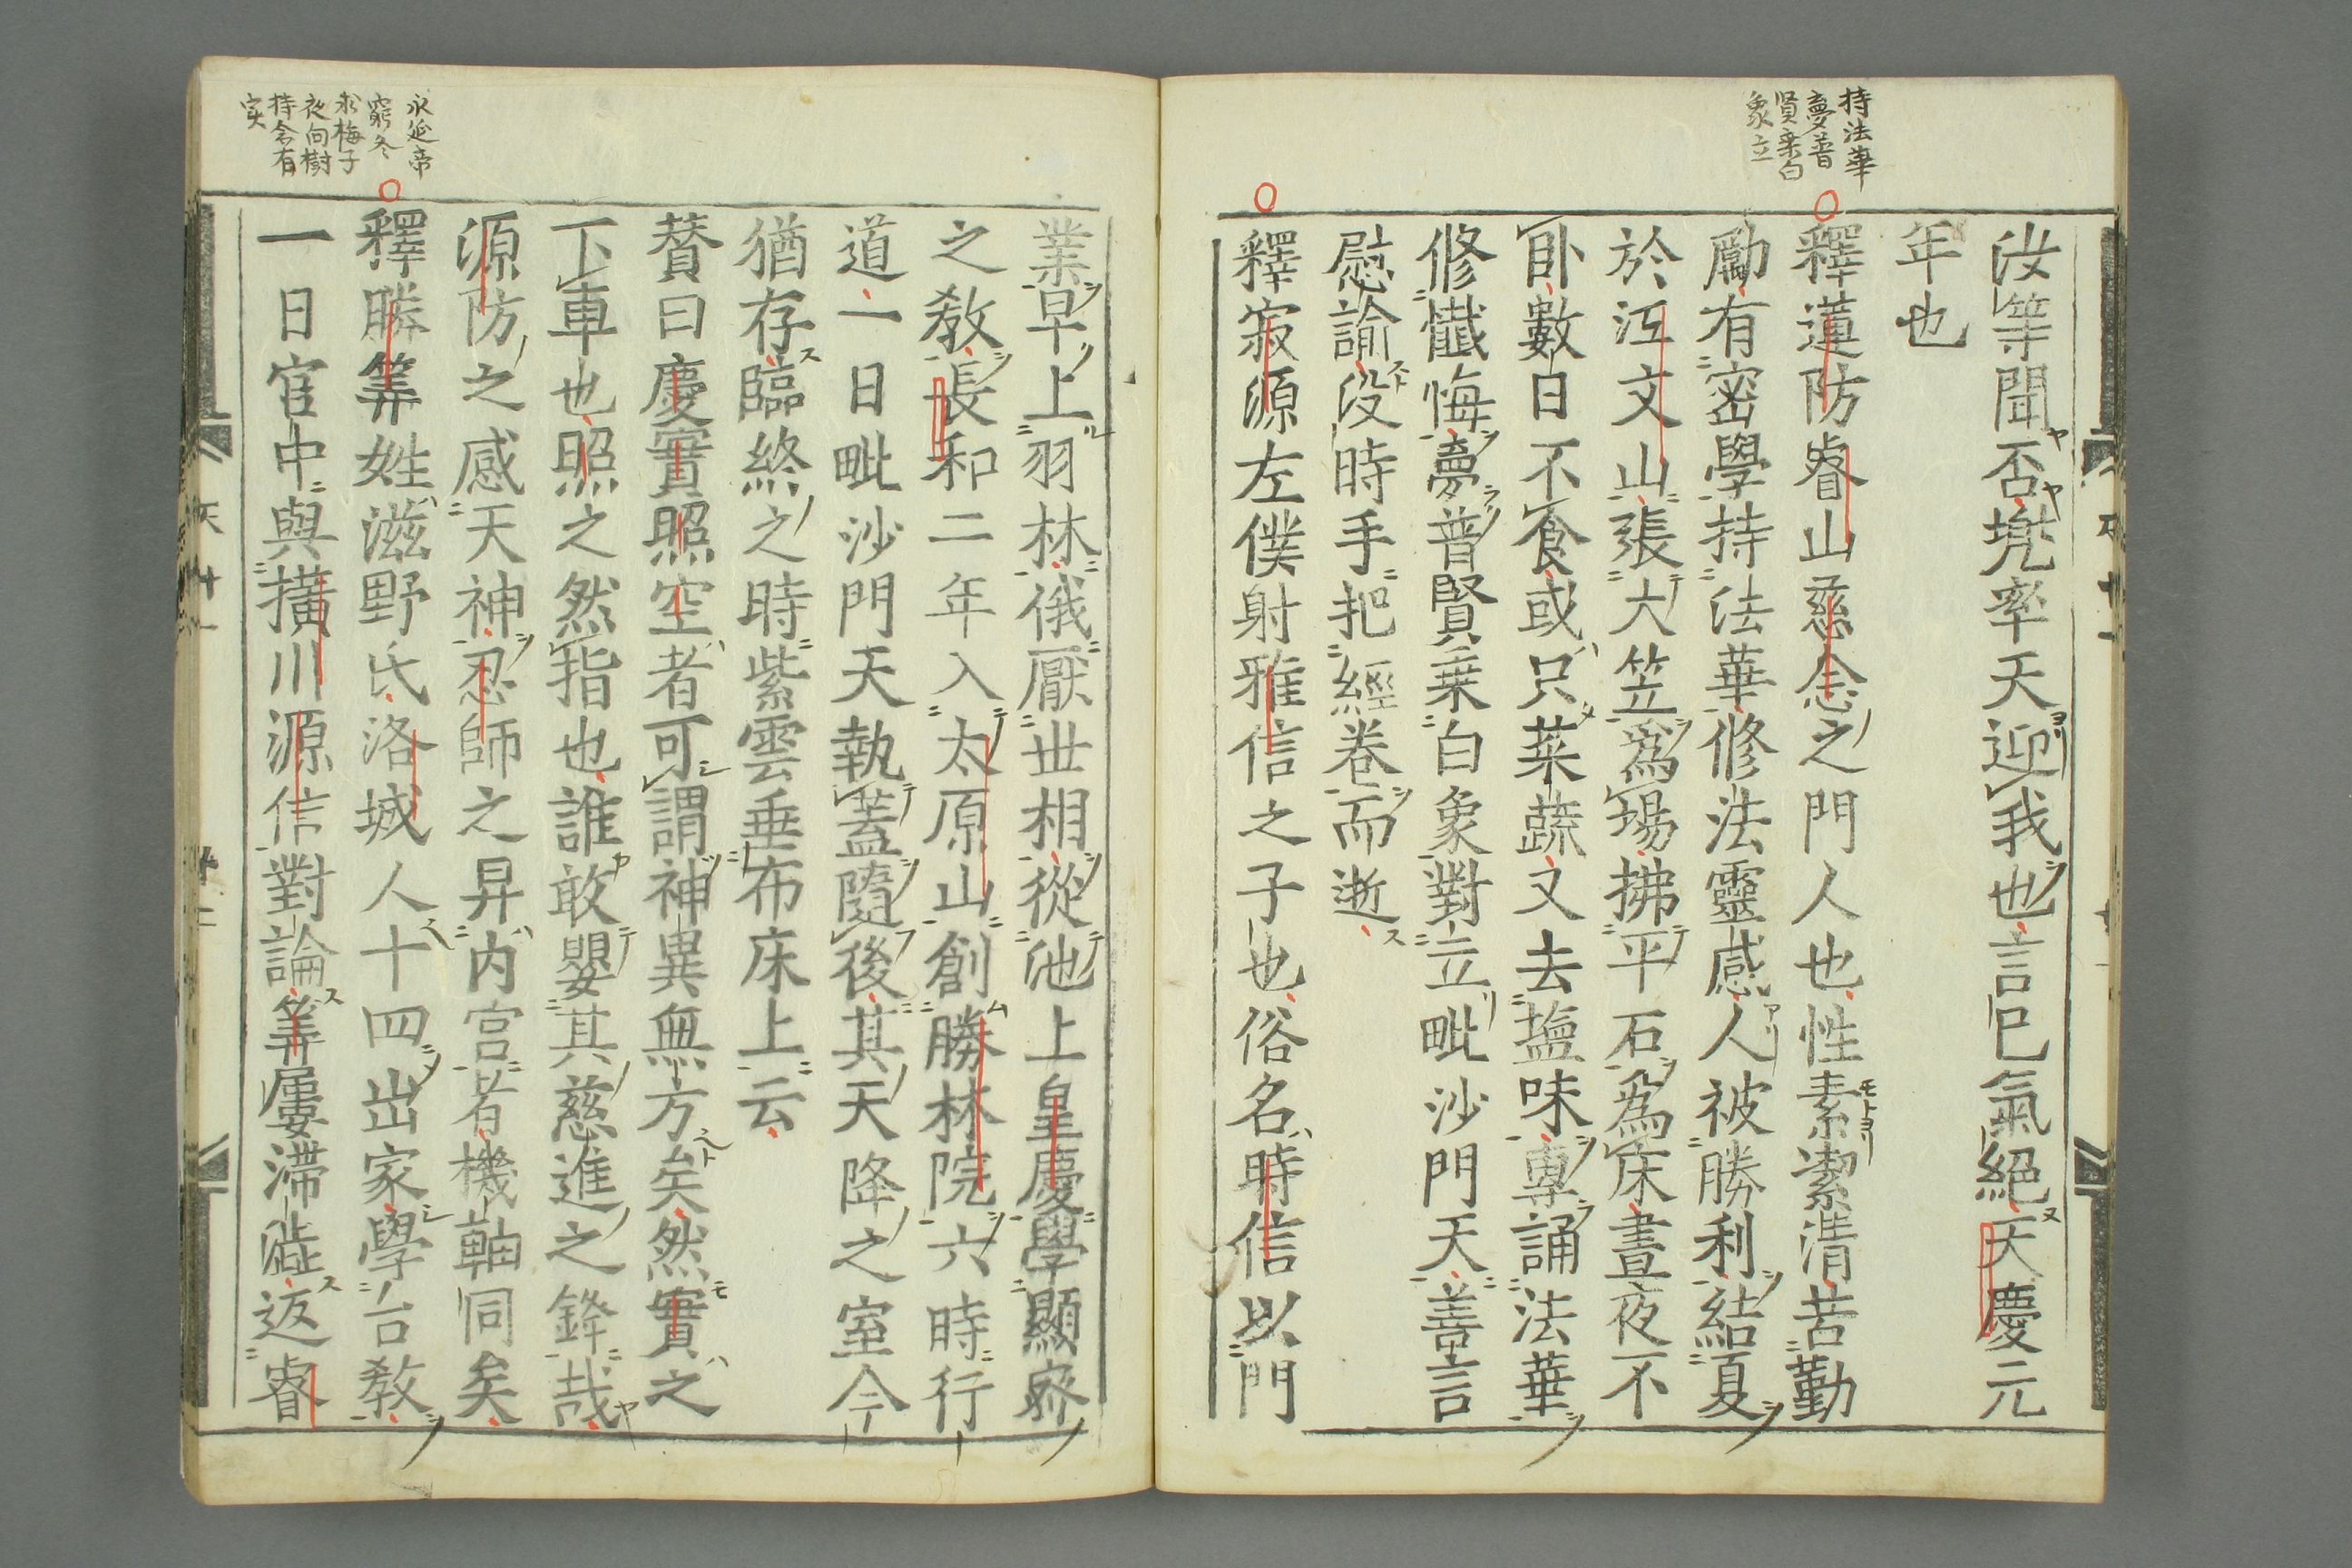 持法華
夢普
賢乗白
象立
汝等聞否兠率天迎我也言已氣絕天慶元
年也
釋蓮防睿山慈念之門人也性素潔淸苦勤
勵有密學持法華修法靈感人被勝利結夏
於江文山張大笠爲場拂平石爲床晝夜不
臥數日不食或只菜蔬又去塩味專誦法華
修懺悔夢普賢乗白象對立毗沙門天善言
慰諭没時手把經卷而逝
釋寂源左僕射雅信之子也俗名時信以門
業早上羽林俄厭世相從池上皇慶學顯密
之敎長和二年入太原山創勝林院六時行
道一日毗沙門天執蓋隨後其天降之室今
猶存臨終之時紫雲垂布床上云
賛曰慶實照空者可謂神異無方矣然實之
下車也照之然指也誰敢嬰其慈進之鋒哉
源防之感天神忍師之昇內宮者機軸同矣
釋勝筭姓滋野氏洛城人十四出家學台敎
一日宮中與横川源信對論筭屢滯澁返睿
永延帝
窮冬
求梅子
夜向樹
持念有
実